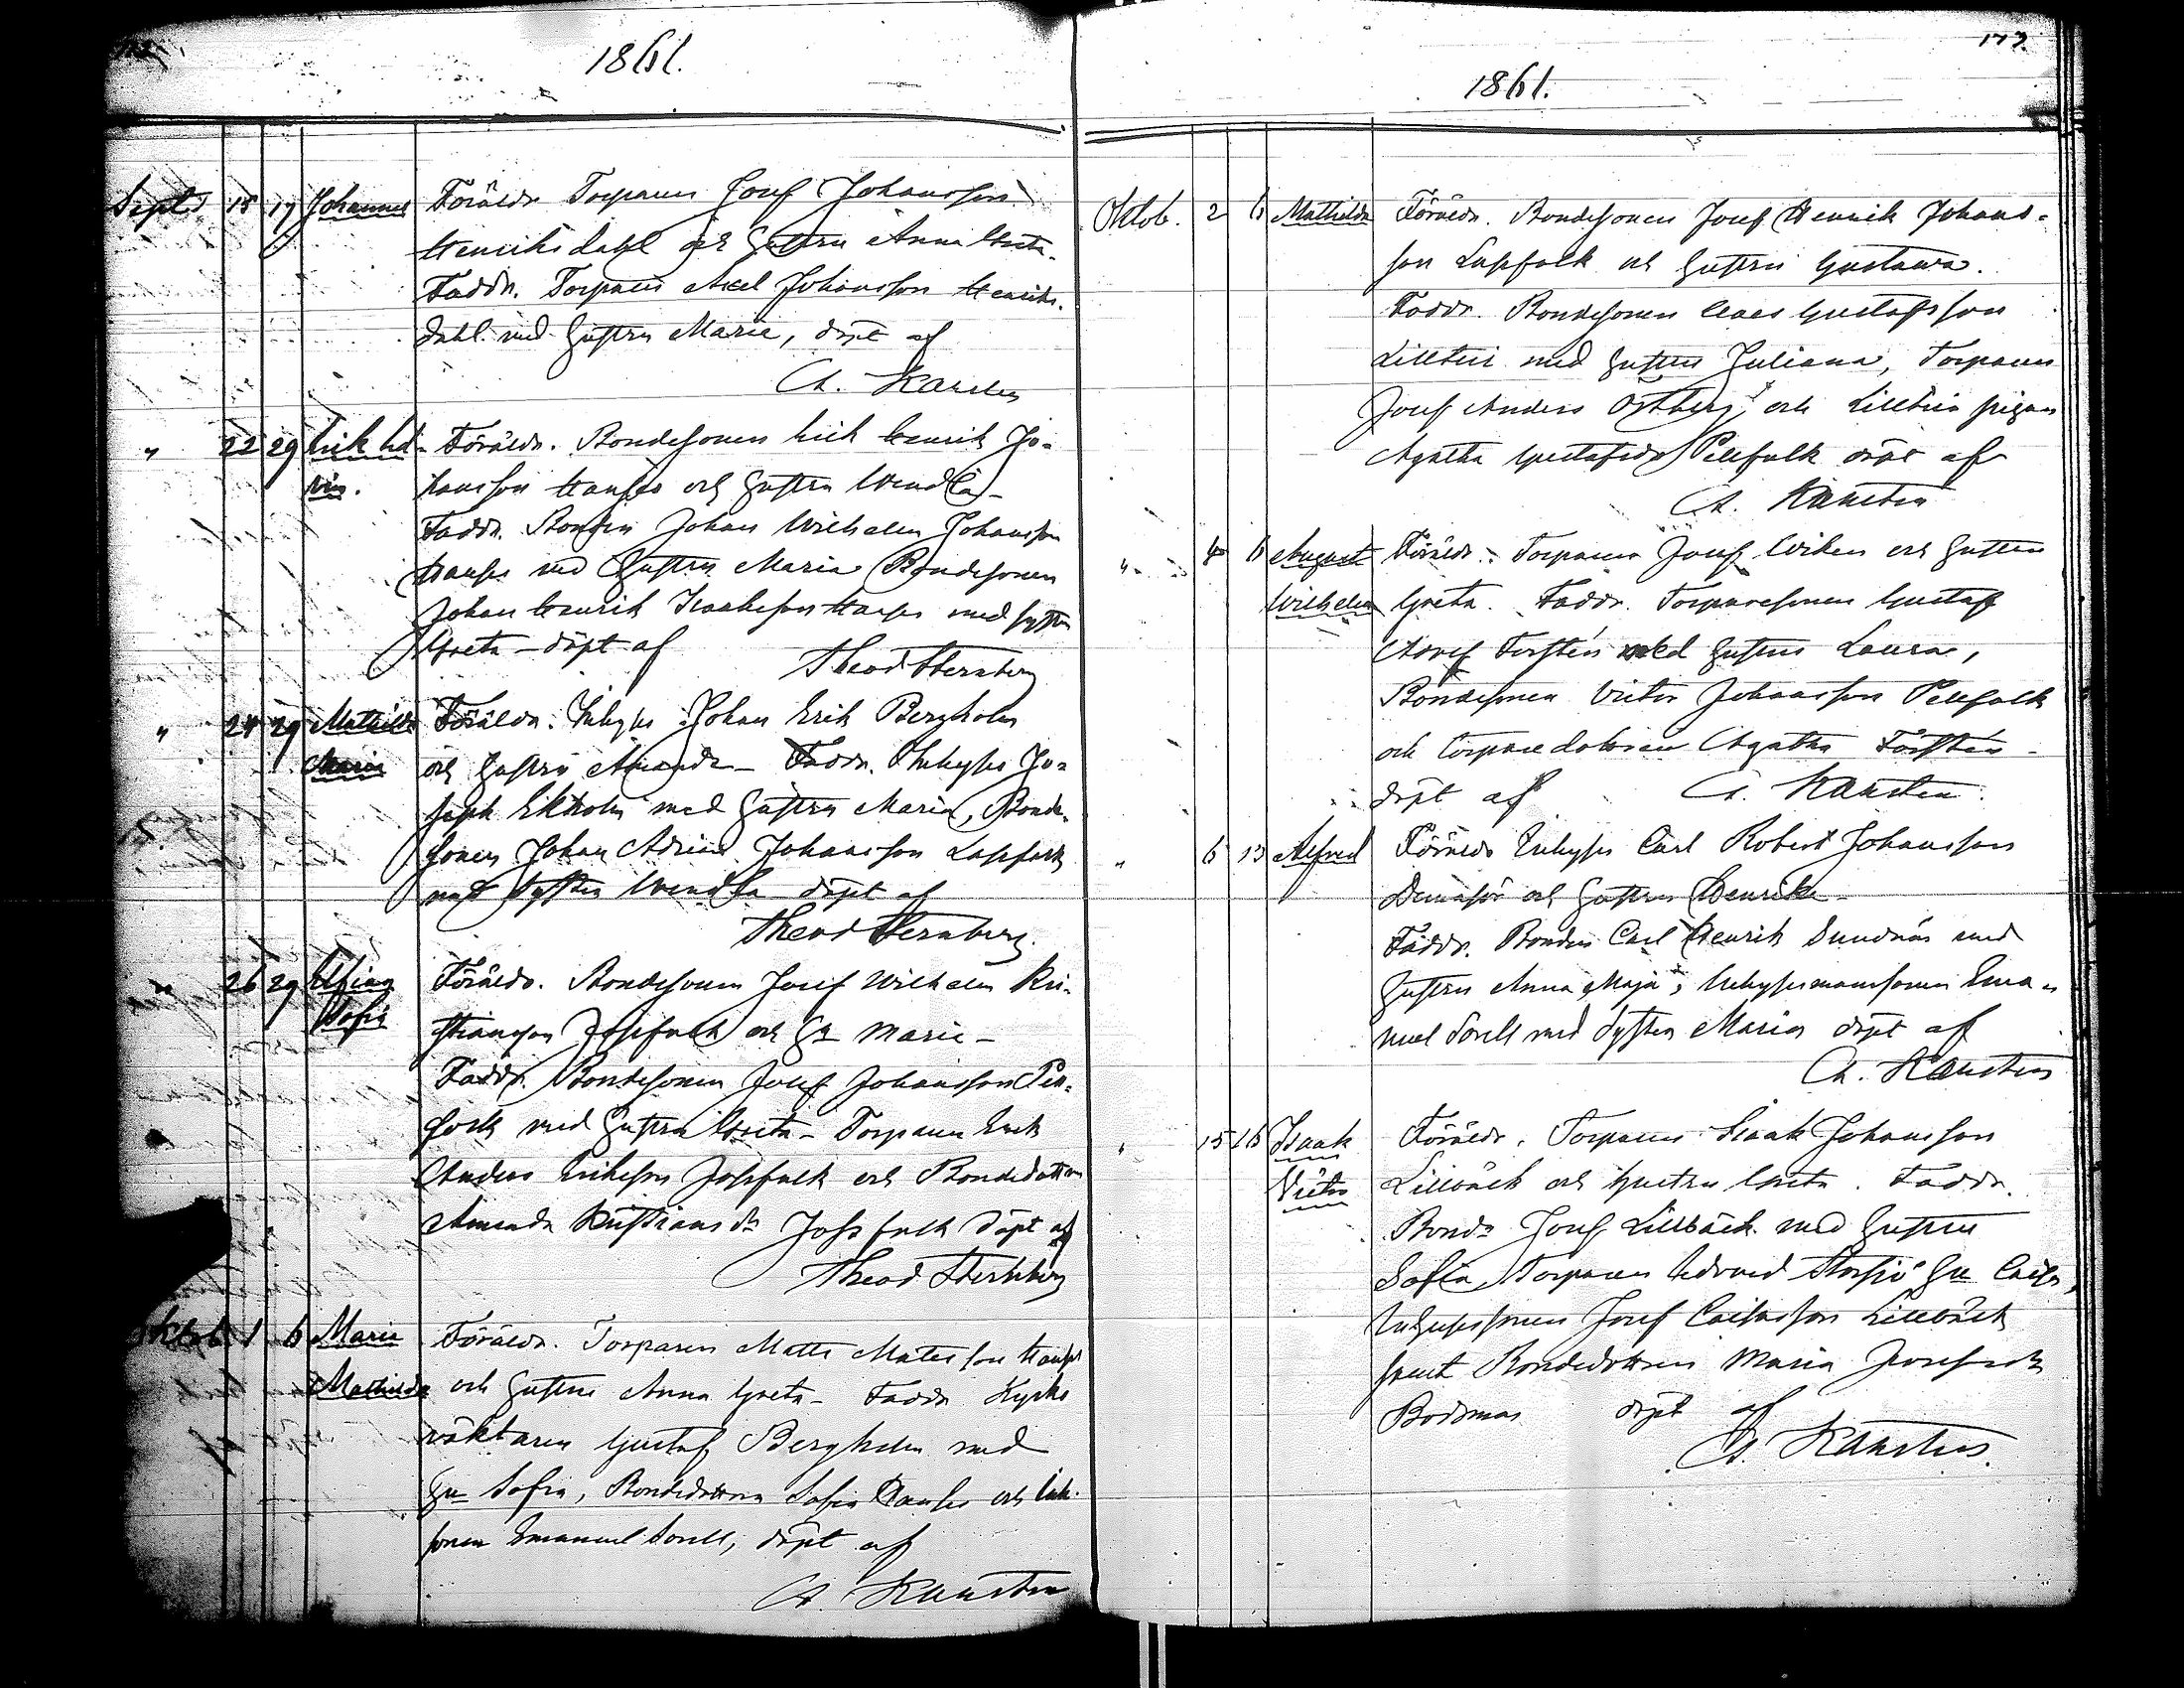 1861.
Sept. 15 17 Johannes Föräldr. Torparen Josef Johansson
Henriksdahl och hustru Anna Greta.
Faddr. Torparen Axel Johansson Henriks-
dahl med hustru Maria, döpt af
A. Karsten
" 22 29 Erik Ed- Föräldr. Bondesonen Erik Henrik Jo-
vin. hansson och hustru Wendla
Faddr. Bonden Johan Wilhelm Johansson
med hustru Maria Bondesonen
Johan Henrik Isaaksson med syster
Greta - döpt af
Theod Sternberg
" 24 29 Mathilda Föräldr. Inhyses Johan Erik Bergholm
Maria och hustru Amanda - Faddr. Inhyses Jo-
seph Ekholm med hustru Maria, Bonde-
sonen Johan Adrian Johansson Lappfolk
med syster Wendla döpt af
Theod Sternberg.
" 26 29 Sofia Föräldr. Bondesonen Josef Wilhelm Kri-
stiansson Jossfolk och hu Maria -
Faddr. Bondesonen Josef Johansson Pell-
folk med hustru Greta - Torparen Erik
Anders Eriksson Jossfolk och Bondedottren
Amanda Kristiansdr Jossfolk döpt af
Theod Sternberg
Oktob. 1 6 Maria Föräldr. Torparen Matts Matsson
Mathilda och hustru Anna Greta - Faddr Kyrko
väktaren Gustaf Bergholm med
hu Sofia, Bondedottren Sofia och
sonen Emanuel Sorell, döpt af
A. Karsten
173.
1861.
Oktob. 2 6 Mathilda Föräldr. Bondesonen Josef Henrik Johans-
son Lappfolk och hustru Gustawa.
Faddr. Bondesonen Claes Gustafsson
med hustru Juliana, Torparen
Josef Anders Östberg och pigan
Agatha Gustafsdr Pellfolk döpt af
A. Karsten
" 4 6 August Föräldr. Torparen Josef Wiken och hustru
Wilhelm Greta. Faddr. Torparesonen Gustaf
Adolf Forstén med hustru Laura,
Bondesonen Victor Johansson Pellfolk
och torparedottren Agatha Forstén -
döpt af A. Karsten.
" 6 13 Alfred Föräldr Inhyses Carl Robert Johansson
och hustru Henrika -
Faddr. Bonden Carl Henrik Sundnäs med
hustru Anna Maja, Inhysesmanssonen Ema-
nuel Sorell med syster Maria döpt af
A. Karsten
" 15 16 Isaak Föräldr. Torparen Isaak Johansson
Victor Lillbäck och hustru Greta. Faddr.
Bond. Josef Lillbäck med hustru
Sofia, Torparen Edvard Storsjö hu Caisa,
Inhysessonen Josef Carlsson Lillbäck
samt Bondedottren Maria
Bodsmar döpt af
A. Karsten.